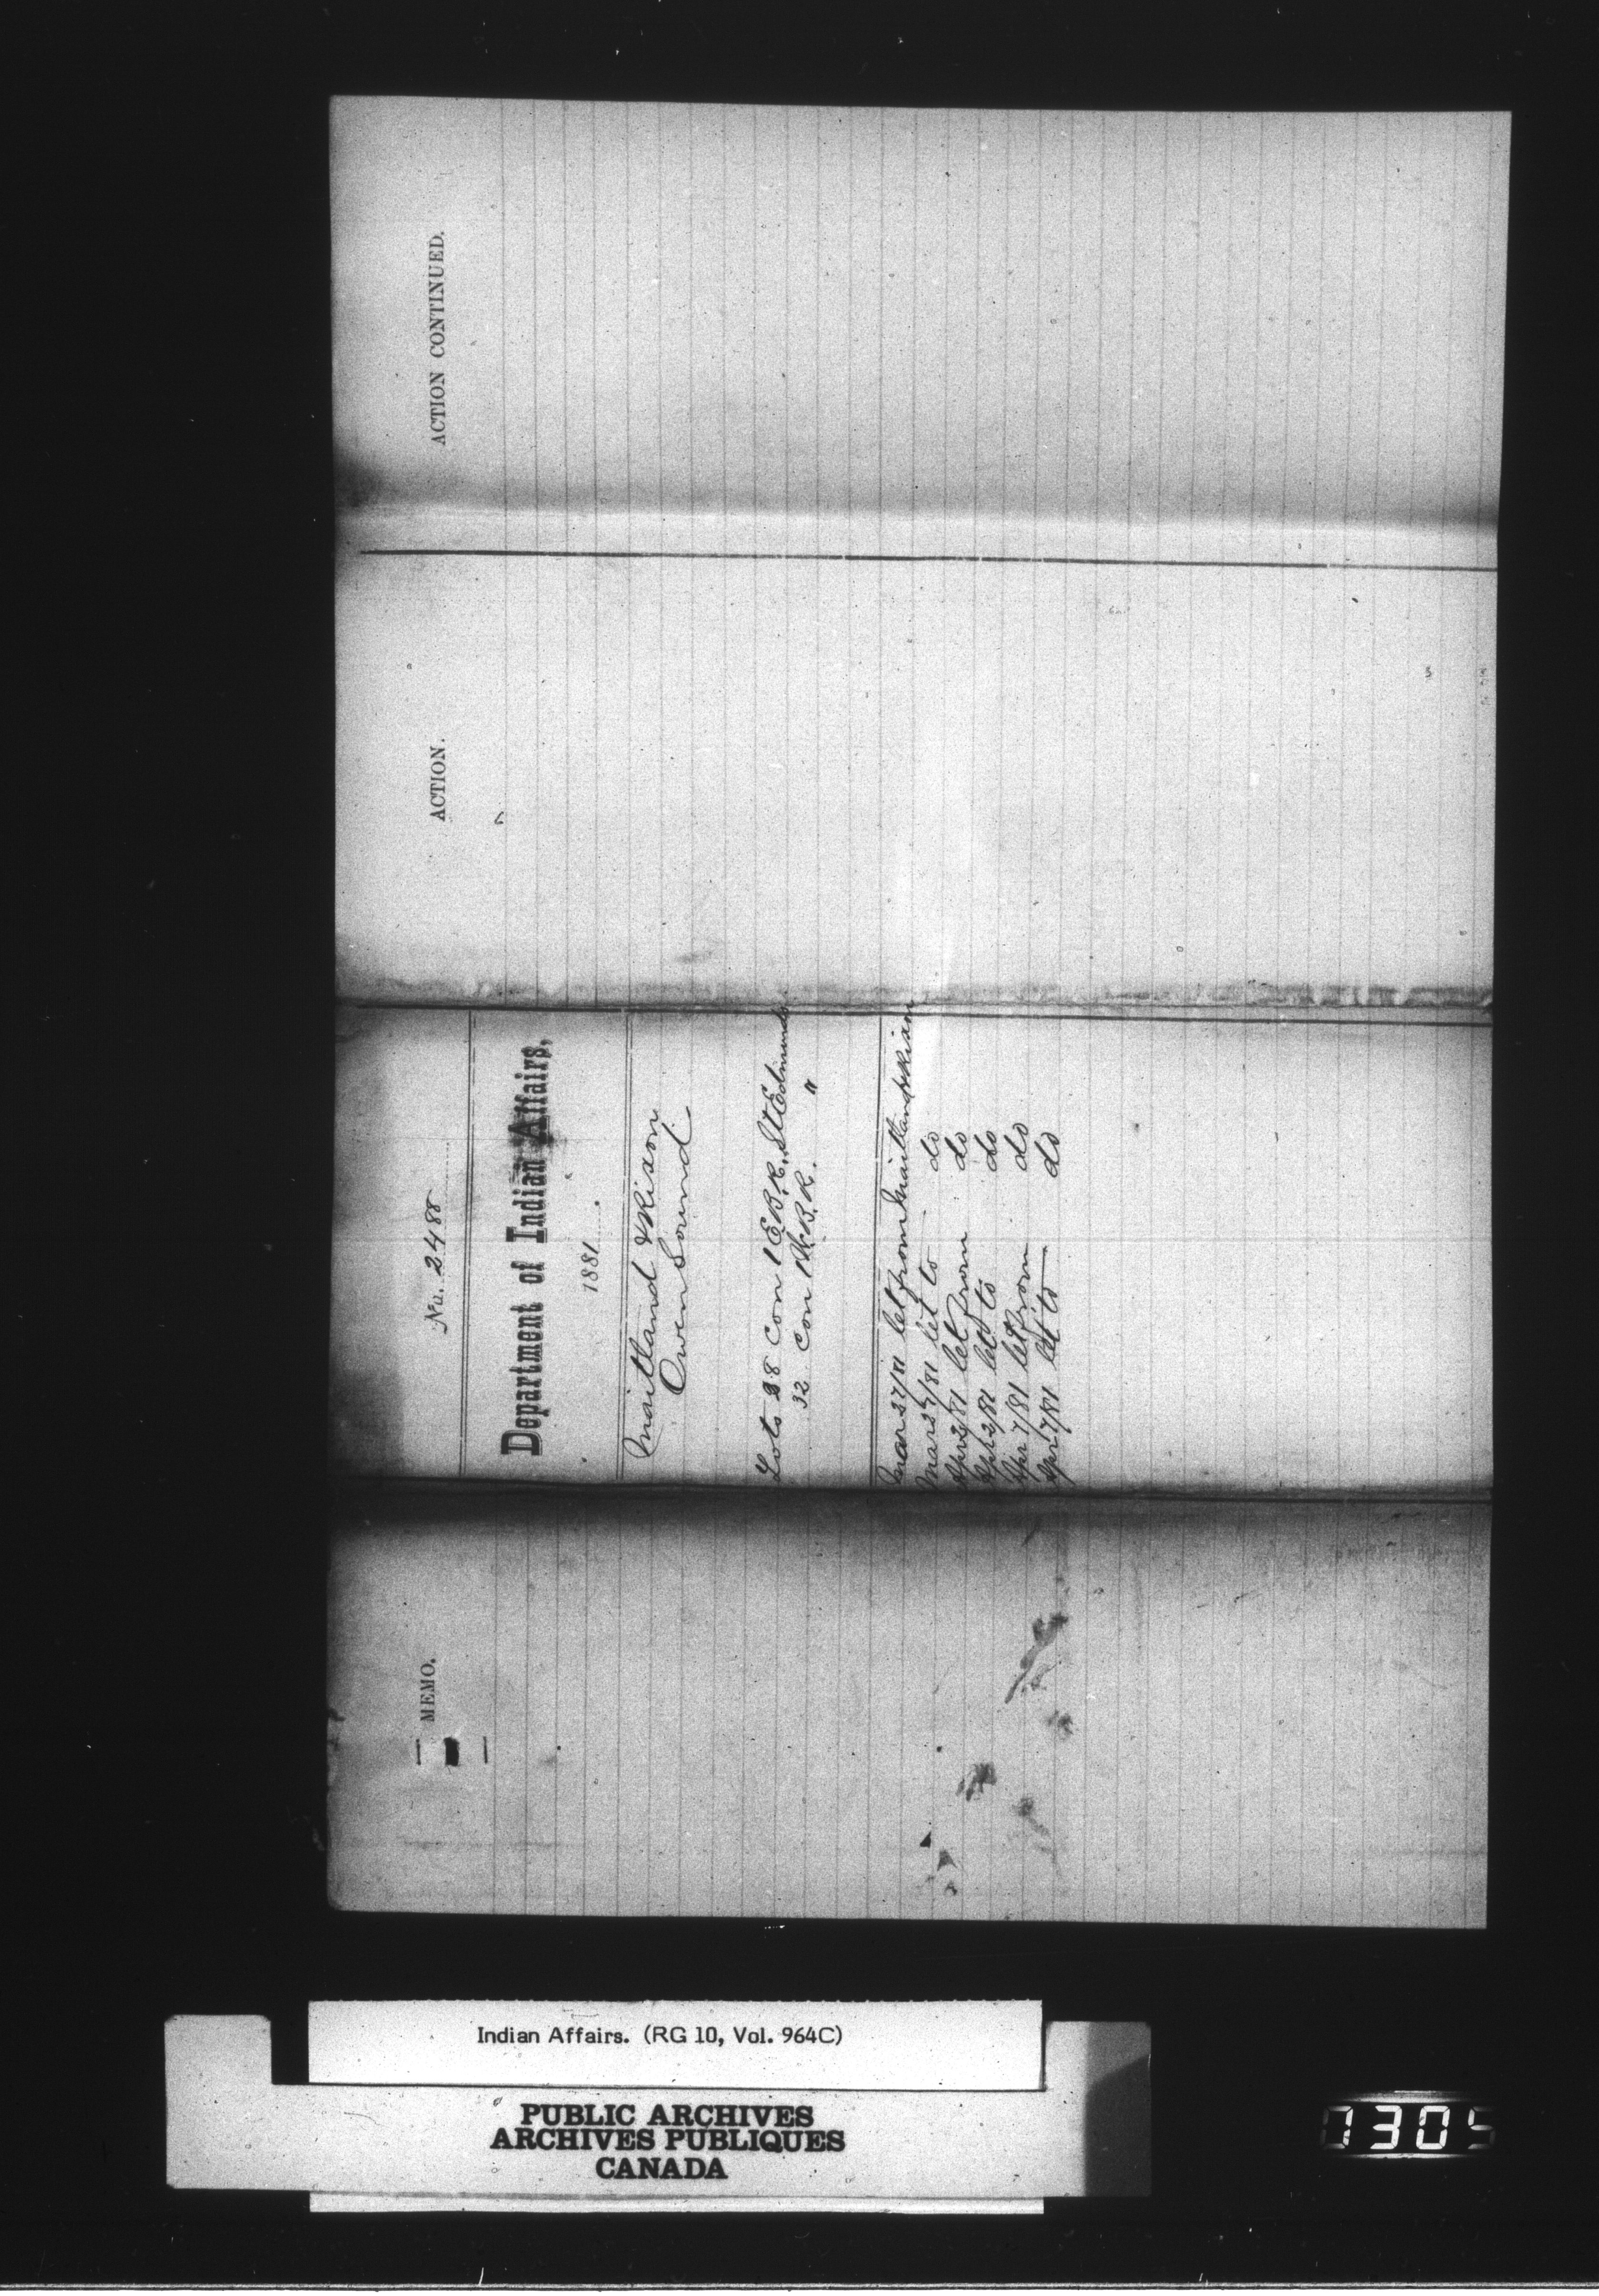 ACTION CONTINUED.
ACTION.
No. 2488
Department of Indian Affairs,
1881.
Maitland & Rixon
Owen Sound
Lots 28 Con 1 E.B.R. St Edmunds
32 Con 1 W.B.R. "
Mar 27/81 let from Maitland & Rixon
Mar 29/81 let to do
Apr 2/81 let from do
Apr 2/81 let to do
Apr 7/81 let from do
Apr 7/81 let to do
MEMO.
Indian Affairs. (RG 10, Vol. 964C)
PUBLIC ARCHIVES
ARCHIVES PUBLIQUES
CANADA
0305